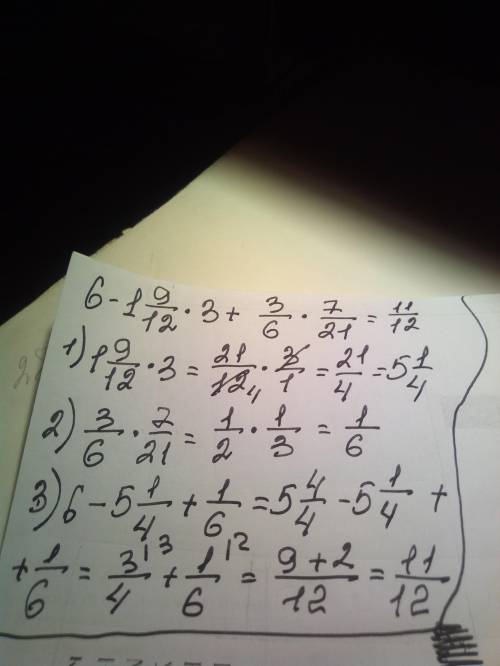 6 - 1 9/12 · 3 + 3/6 · 7/21 = 11/12
1) 1 9/12 · 3 = 21/12 4 · 3/1 = 21/4 = 5 1/4
2) 3/6 · 7/21 = 1/2 · 1/3 = 1/6
3) 6 - 5 1/4 + 1/6 = 5 4/4 - 5 1/4 +
+ 1/6 = 3/4 |3 + 1/6 |2 = 9+2/12 = 11/12